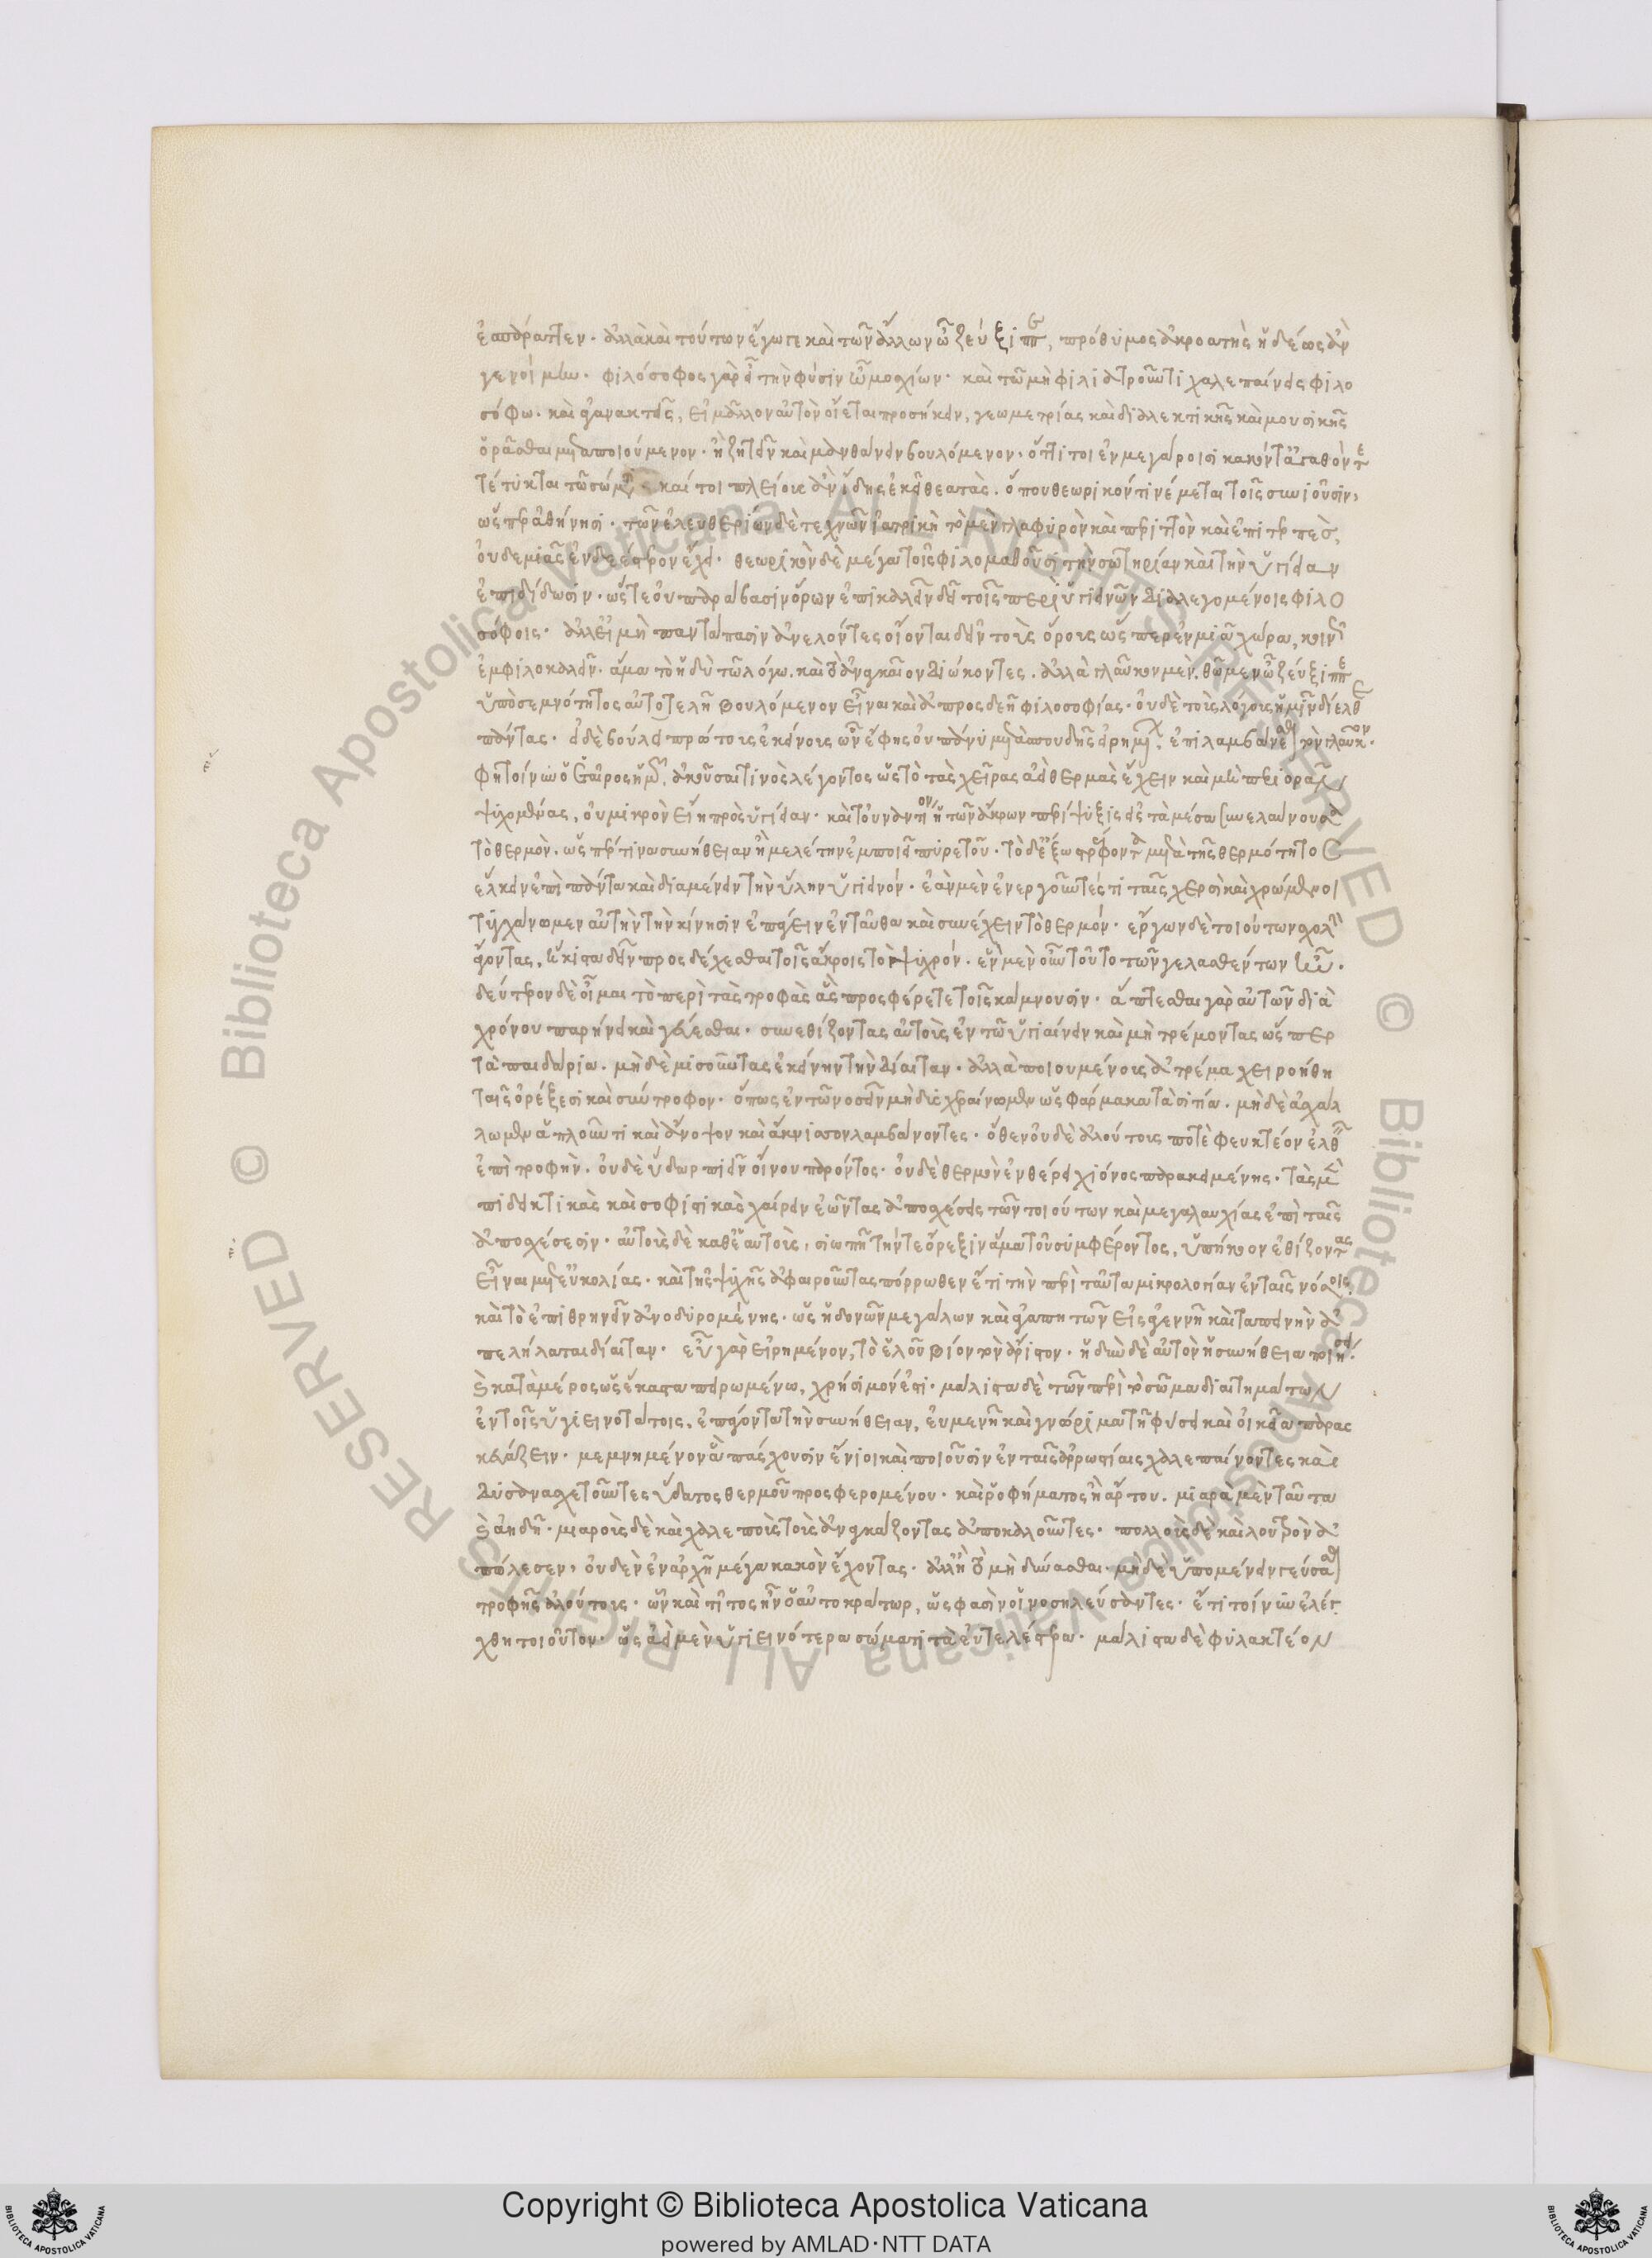 ἔπραττεν· ἀλλὰ καὶ τούτων ἔγωγε καὶ τῶν ἄλλων ὦ Ζεύξιππε, πρόθυμος ἀκροατὴς ἡδέως ἂν
γενοίμην. φιλόσοφος γὰρ εἶ τὴν φύσιν ὦ Μοσχίων· καὶ τῶ μὴ φιλιατροῦντι χαλεπαίνεις φιλο
σόφω. καὶ ἀγανακτεῖς, εἰ μᾶλλον αὐτὸν οἴεται προσήκειν, γεωμετρίας καὶ διαλεκτικῆς καὶ μουσικῆς
ὁρᾶσθαι μεταποιούμενον· ἢ ζητεῖν καὶ μανθάνειν βουλόμενον· ὅττι τοι ἐν μεγάροισι κακόν τ' ἀγαθόν τε
τέτυκται τῶ σώματι· καί τοι πλείους ἂν ἴδης ἐκεῖ θεατὰς. ὅπου θεωρικόν τι νέμεται τοῖς συνιοῦσιν,
ὥσπερ ἀθήνησι· τῶν ἐλευθερίων δὲ τεχνῶν ἰατρικὴ τὸ μὲν γλαφυρὸν καὶ περιττὸν καὶ ἐπιτερπὲς,
οὐδεμιᾶς ἐνδεέστερον ἔχει· θεωρικὸν δὲ μέγα τοῖς φιλομαθοῦσι τὴν σωτηρίαν καὶ τὴν ὑγίειαν
ἐπιδίδωσιν. ὥστε οὐ παράβασιν ὅρων ἐπικαλεῖν δεῖ τοῖς περὶ ὑγιεινῶν διαλεγομένοις φιλο
σόφοις· ἀλλ' εἰ μὴ παντάπασιν ἀνελόντες οἴονται δεῖν τοὺς ὅρους ὥσπερ ἐν μιᾶ χώρα, κοινῇ
ἐμφιλοκαλεῖν. ἅμα τὸ ἡδὺ τῶ λόγω. καὶ τὸ ἀναγκαῖον διώκοντες. ἀλλὰ γλαῦκον μὲν. ἐῶμεν ὦ Ζεύξιππε
ὑπὸ σεμνότητος αὐτοτελῆ βουλόμενον εἶναι καὶ ἀπροσδεῆ φιλοσοφίας· οὐδὲ τοὺς λόγους ἡμῖν δίελθε
πάντας. εἰ δὲ βούλει πρώτους ἐκείνους ὧν ἔφης οὐ πάνυ μετὰ σπουδῆς εἰρημένων, ἐπιλαμβάνεσθαι τὸν γλαῦκον·
φη τοίνυν ὁ ἑταῖρος ἡμῶν, ἀκοῦσαί τινος λέγοντος ὡς τὸ τὰς χεῖρας ἀεὶ θερμὰς ἔχειν καὶ μὴ περιορᾶν
ψυχομένας, οὐ μικρὸν εἴη πρὸς ὑγίειαν· καὶ τοὐναντίον ἡ τῶν ἄκρων περίψυξις εἰς τὰ μέσα συνελαύνουσα
τὸ θερμὸν. ὥσπερ τινα συνήθειαν ἢ μελέτην ἐμποιεῖ πυρετοῦ· τὸ δὲ ἔξω στρέφοντα μετὰ τῆς θερμότητος
ἕλκειν ἐπὶ πάντα καὶ διαμένειν τὴν ὕλην ὑγιεινόν· ἐὰν μὲν ἐνεργοῦντές τι ταῖς χερσὶ καὶ χρώμενοι
τυγχάνωμεν αὐτὴν τὴν κίνησιν ἐπάγειν ἐνταῦθα καὶ συνέχειν τὸ θερμόν· ἔργων δὲ τοιούτων σχολὴν
ἄγοντας, ἥκιστα δεῖν προσδέχεσθαι τοῖς ἄκροις τὸ ψυχρόν· ἓν μὲν οὖν τοῦτο τῶν γελασθέντων ἦν.
δεύτερον δὲ οἶμαι τὸ περὶ τὰς τροφὰς ἃς προσφέρετε τοῖς κάμνουσιν· ἅπτεσθαι γὰρ αὐτῶν διὰ
χρόνου παρήνει καὶ γεύεσθαι· συνεθίζοντας αὑτοὺς ἐν τῶ ὑγιαίνειν καὶ μὴ τρέμοντας ὥσπερ
τὰ παιδάρια. μὴ δὲ μισοῦντας ἐκείνην τὴν δίαιταν· ἀλλὰ ποιουμένους ἀτρέμα χειροήθη
ταῖς ὀρέξεσι καὶ σύντροφον. ὅπως ἐν τῶ νοσεῖν μὴ δυσχεραίνωμεν ὡς φάρμακα τὰ σιτία. μὴ δὲ ἀσχάλ
λωμεν ἁπλοῦν τι καὶ ἄνοψον καὶ ἄκνισον λαμβάνοντες. ὅθεν οὐδὲ ἀλούτους ποτὲ φευκτέον ἐλθεῖν
ἐπὶ τροφὴν. οὐδὲ ὕδωρ πιεῖν οἴνου παρόντος· οὐδὲ θερμὸν ἐν θέρει χιόνος παρακειμένης· τὰς μὲν
πιδεικτικὰς καὶ σοφιστικὰς χαίρειν ἐῶντας ἀποσχέσεις τῶν τοιούτων καὶ μεγαλαυχίας ἐπὶ ταῖς
ἀποσχέσεσιν· αὐτοὺς δὲ καθ' ἑαυτοὺς, σιωπῆ τήν τε ὄρεξιν ἅμα τοῦ συμφέροντος, ὑπήκοον ἐθίζοντας
εἶναι μετ' εὐκολίας· καὶ τῆς ψυχῆς ἀφαιροῦντας πόρρωθεν ἔτι τὴν περὶ ταῦτα μικρολογίαν ἐν ταῖς νόσοις
καὶ τὸ ἐπιθρηνεῖν ἀνοδυρομένης· ὡς ἡδονῶν μεγάλων καὶ ἀγαπητῶν εἰς ἀγεννῆ καὶ ταπεινὴν ἀ
πελήλαται δίαιταν· εὖ γὰρ εἰρημένον, τὸ ἑλοῦ βίον τὸν ἄριστον· ἡδὺν δὲ αὐτὸν ἡ συνήθεια ποιήσει.
καὶ κατὰ μέρος ὡς ἕκαστα πειρωμένω, χρήσιμόν ἐστι. μάλιστα δὲ τῶν περὶ τὸ σῶμα διαιτημάτων
ἐν τοῖς ὑγιεινοτάτοις, ἐπάγοντα τὴν συνήθειαν, εὐμενῆ καὶ γνώριμα τῆ φύσει καὶ οἰκεῖα παρασ
κευάζειν· μεμνημένον ἃ πάσχουσιν ἔνιοι καὶ ποιοῦσιν ἐν ταῖς ἀρρωστίαις χαλεπαίνοντες καὶ
δυσανασχετοῦντες ὕδατος θερμοῦ προσφερομένου· καὶ ῥοφήματος ἢ ἄρτου. μιαρὰ μὲν ταῦτα
καὶ ἀηδῆ· μιαροὺς δὲ καὶ χαλεποὺς τοὺς ἀναγκάζοντας ἀποκαλοῦντες· πολλοὺς δὲ καὶ λουτρὸν ἀ
πώλεσεν, οὐδὲν ἐν ἀρχῆ μέγα κακὸν ἔχοντας. ἀλλ' ἢ τὸ μὴ δύνασθαι. μὴ δὲ ὑπομένειν γεύσασθαι
τροφῆς ἀλούτους· ὧν καὶ τίτος ἦν ὁ αὐτοκράτωρ, ὥς φασιν οἱ νοσηλεύσαντες. ἔτι τοίνυν ἐλέγ
χθη τοιοῦτον· ὡς ἀεὶ μὲν ὑγιεινότερα σώματι τὰ εὐτελέστερα. μάλιστα δὲ φυλακτέον
© Biblioteca Apostolica Vaticana ALL RIGHTS RESERVED © Biblioteca Apostolica Vaticana ALL RIGHTS RESERVED
Copyright © Biblioteca Apostolica Vaticana
powered by AMLAD·NTT DATA